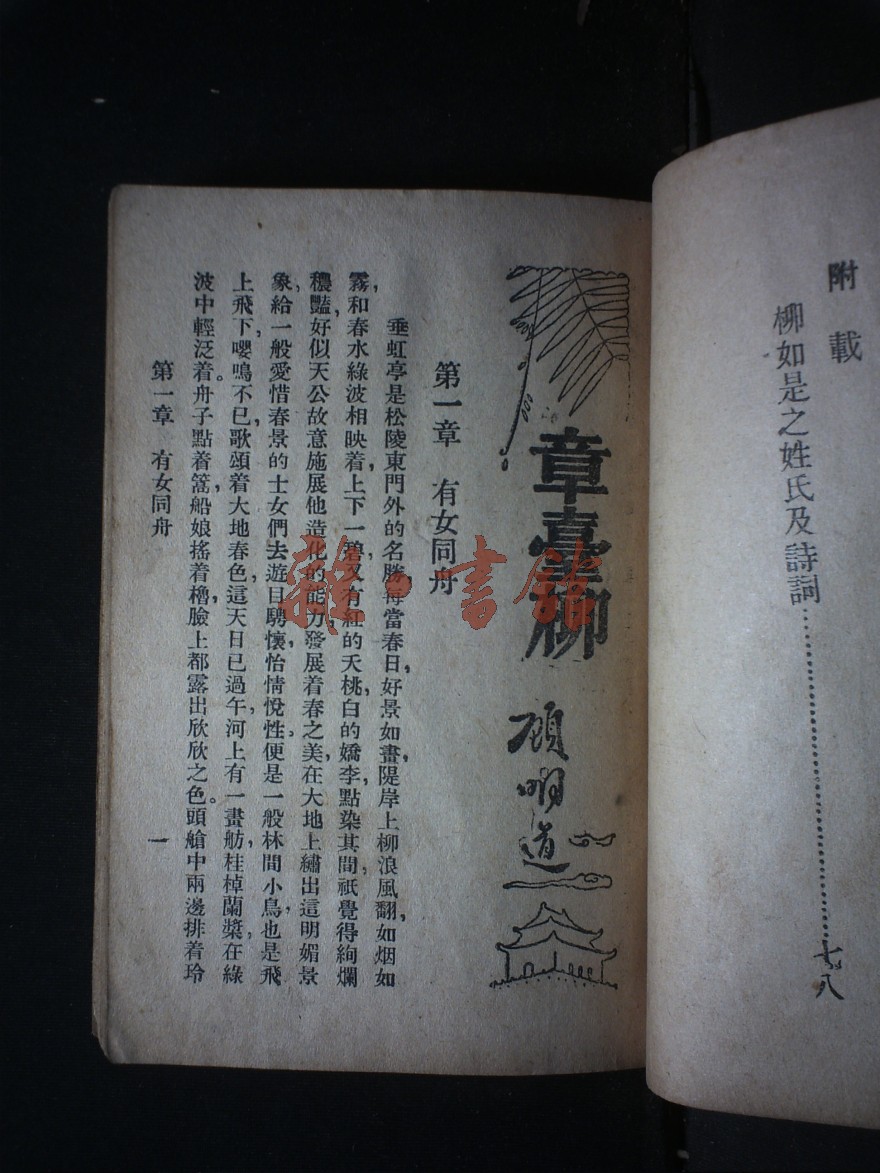 附載
柳如是之姓氏及詩詞……………………七八
章臺柳
顧明道
第一章 有女同舟
垂虹亭是松陵東門外的名勝,每當春日,好景如畫,隄岸上柳浪風翻,如烟如
霧,和春水綠波相映着,上下一碧,又有紅的夭桃,白的嬌李,點染其間,祇覺得絢爛
穠豔,好似天公故意施展他造化的能力,發展着春之美,在大地上繡出這明媚景
象,給一般愛惜春景的士女們去遊目騁懷,怡情悅性。便是一般林間小鳥,也是飛
上飛下,嚶鳴不已,歌頌着大地春色。這天日已過午,河上有一畫舫,桂棹蘭槳,在綠
波中輕泛着。舟子點着篙,船娘搖着櫓,臉上都露出欣欣之色。頭艙中兩邊排着玲
第一章 有女同舟
一
雜·書館